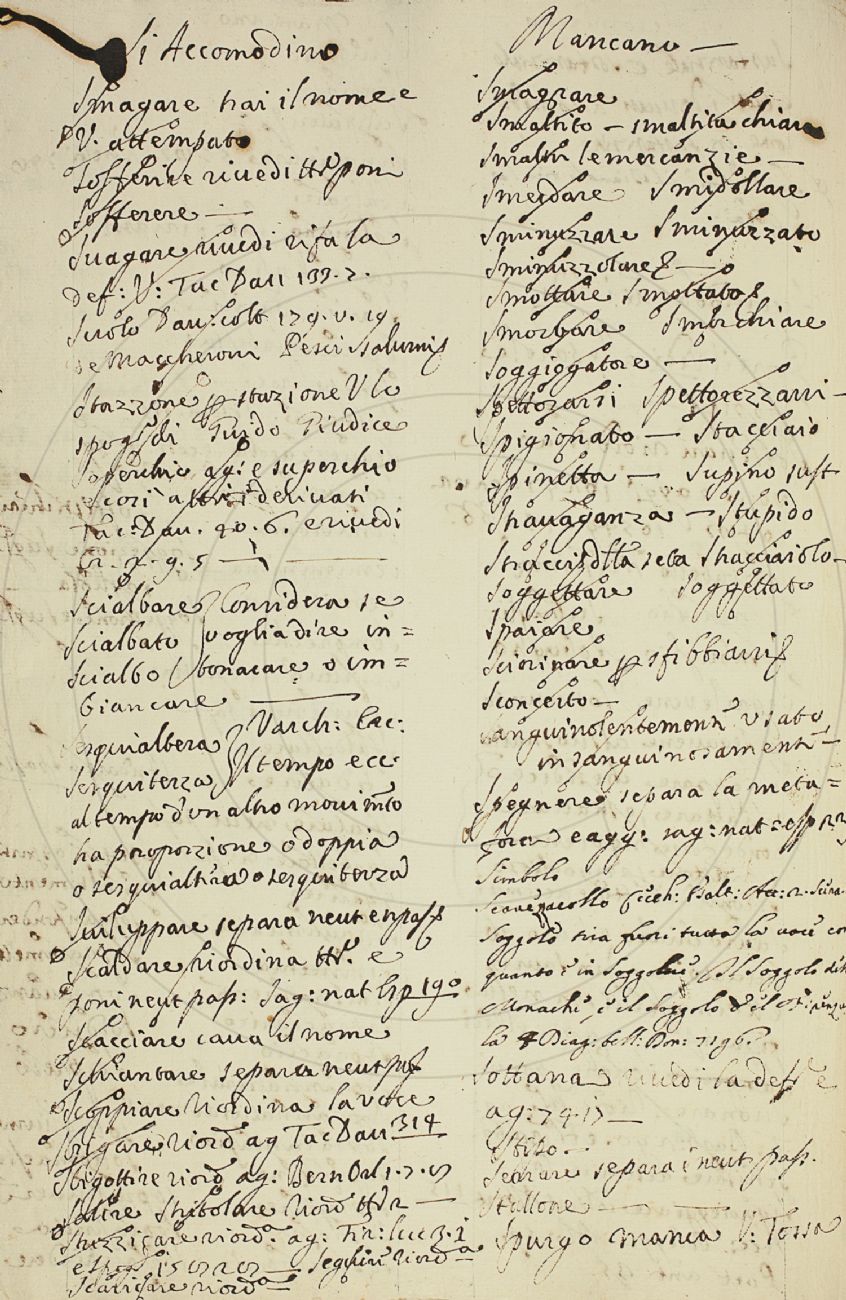 Si Accomodino
Smagare hai il nome e
V. attempato
Sofferire rivedi tt.º poni
Sofferere —
Svagare rivedi rifa la
def: V: Tac Dau 139. 2.
Suolo Dau: colt 179. v. 19
e Maccheroni Pesci salumi
Stazzone p stazione V lo
spog: di Guido Giudice
Soperchio ag: e superchio
e cosi altri i derivati
Tac: Dau. 40. 6. e rivedi
Cr. 2. 9. 5 —
Scialbare Considera se
Scialbato voglia dire in=
Scialbo bonacare o im=
biancare —
sesquialtera Varch: Lec:
sesquiterza Il tempo ecc
al tempo d'un altro movim.to
ha proporzione o doppia
o sesquialtera o sesquiterza
Sviluppare separa neut e pass
Scaldare riordina tt.º e
poni neut pass: Sag: nat esp 190
Scacciare cava il nome
Schiantare separa neut pass
Scoppiare riordina la voce
Sbrigare riord ag Tac Dau 314
Sbigottire riord ag: Bern Orl 1. 7. 57
Salire riord tt.º 2 —
Stuzzicare riord.ª ag: Fir: luc 3. 2
Seguire riord.ª
Scaricare riord.ª
Mancano —
Smagrare
Smaltito — smaltita chiara
Smaltir le mercanzie —
Smerdare Smidollare
Sminuzzare Sminuzzato
Sminuzzolare —
Smottare Smottato
Smorbare Smorchiare
Soggiogatore —
Spettorarsi Spettorezzarsi —
Spigionato — Stacciaio
Spinetta — Supino sust
Stravaganza — Stupido
Straccio dtta seta Stracciaiolo —
Soggettare Soggettato
Spaiare
Sciorinare p sfibbiarsi
Sconcerto —
sanguinolentement usato
in sanguinosament —
Spegnere separa la meta=
fora e agg: sag: nat: esp 22
Simbolo
Scavezzacollo Cecch: Salt: At: 2.
Soggolo tira fuori tutta la voce con
quanto è in Soggolare. Il Soggolo
Monache, è il Soggolo
la Diag: bell: Don: 2196.
Sottana rivedi la deff e
ag: 74. 17 —
Stito —
Serrare separa i neut pass.
Stallone —
Spurgo manca V: Tossa